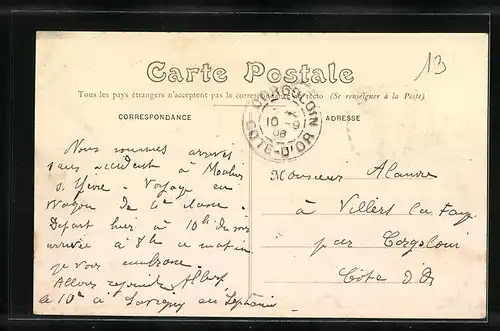 13
Carte Postale
Tous les pays étrangers n'acceptent pas la correspondance au recto (Se renseigner à la Poste)
CORRESPONDANCE
ADRESSE
CORGOLOIN
10 - 9
08
COTE-D'OR
Nous sommes arrivés
sans accident à Moulins
s. Yèvre - Voyage en
Wagon de 1e classe -
Départ hier à 10h du soir
arrivée à 8h ce matin
je vous embrasse -
Allons rejoindre Albert
le 10e à Savigny en Septaine
Monsieur
à Villers la Faye
par Corgoloin
Côte d'Or